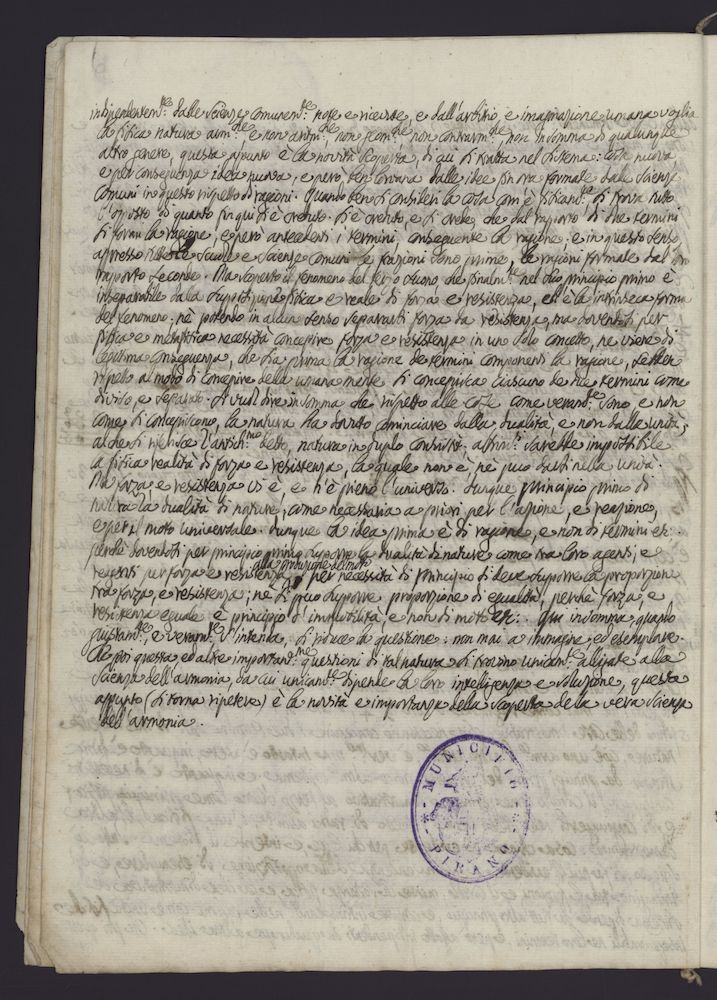 indipendentem.te dalle Scienze comunem.te note e ricevute, e dall'arbitrio, e imaginazione umana voglia
la fisica natura arm.che, e non aritm.che, non geom.che non contrarm.che, non in somma di qualunque
altro genere, questa appunto è la novità scoperta, di cui si tratta nel Sistema: cosa nuova,
e per conseguenza idea nuova, e però ben lontana dalle idee fin ora formate dalle Scienze
comuni in questo rispetto di ragioni. Quando ben si consideri la cosa com'è fisicam.te si trova tutto
l'opposto di quanto fin qui si è creduto. Si è creduto e si crede, che dal rapporto di due termini
si formi la ragione, e però antecedenti i termini, conseguente la ragione: e in questo senso
appresso tutte le Scuole e Scienze comuni le frazioni sono prime, le ragioni formate dal loro
rapporto seconde. Ma scoperto il fenomeno del terzo suono che finalm.te nel suo principio primo è
inseparabile dalla supposizione fisica e reale di forza e resistenza, ed è la intrinseca forma
del fenomeno; nè potendo in alcun senso separarsi forza da resistenza, ma dovendosi per
fisica e metafisica necessità concepire forza e resistenza in uno solo concetto, ne viene di
legitima conseguenza, che sia prima la ragione de termini componenti la ragione, sebben
rispetto al modo di concepire della umana mente si concepisca ciascuno de due termini come
diviso, e separato. Si vuol dire in somma che rispetto alle cose come veram.te sono e non
come si concepiscono, la natura ha dovuto cominciare dalla dualità, e non dalla unità;
al che si riferisce l'antich.mo detto, natura in duplo consistit. altrim.ti sarebbe impossibile
la fisica realità di forza e resistenza, la quale non è, nè può darsi nella unità.
Ma forza e resistenza vi è, e n'è pieno l'universo. dunque principio primo di
natura la dualità di nature, come necessaria a priori per l'azione, e reazione,
e per il moto universale. dunque la idea prima è di ragione, e non di termini etc.
perchè dovendosi per principio primo supporre la dualità di nature come tra loro agenti, e
reagenti per forza e resistenza, alla produzione del moto per necessità di principio si deve supporre la proporzione
tra forza, e resistenza; nè si può supporre proporzione di equalità, perchè forza, e
resistenza equale è principio d'immobilità, e non di moto etc: qui in somma, quando
giustam.te, e veram.te s'intenda, si riduce la questione: non mai a immagine, ed esemplare.
Che poi questa, ed altre important.me questioni di tal natura si trovino unicam.te alligate alla
Scienza dell'armonia, da cui unicam.te dipende la loro intelligenza e soluzione, questa
appunto (si torna ripetere) è la novità e importanza della scoperta della vera Scienza
dell'armonia.
MUNICIPIO
PIRANO